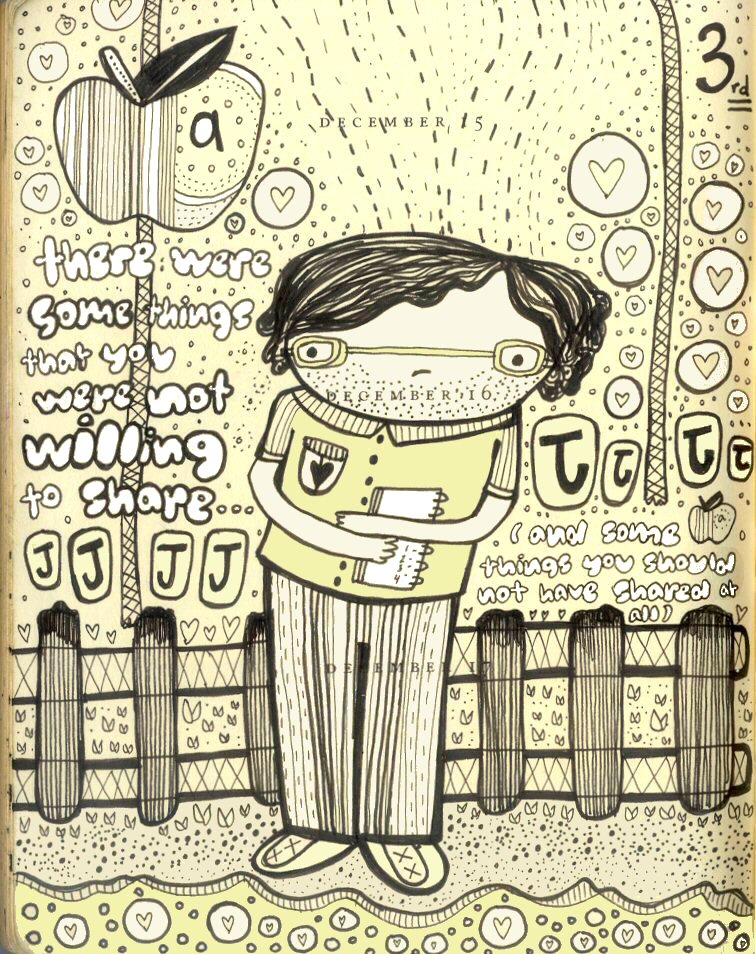 3rd
a
DECEMBER 15
there were
some things
that you
were not
willing
to share...
DECEMBER 16
J J J J
T T T T
a
(and some
things you should
not have shared at
all)
DECEMBER 17